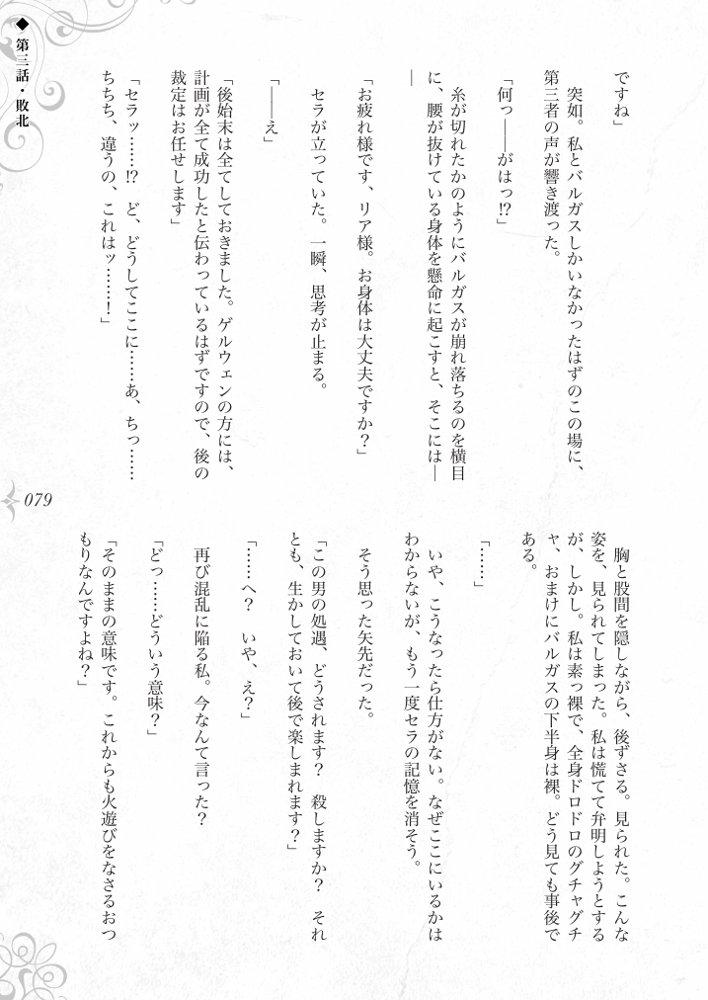 ◆ 第三話・敗北
ですね」
　突如。私とバルガスしかいなかったはずのこの場に、
第三者の声が響き渡った。
「何っ――がはっ!?」
　糸が切れたかのようにバルガスが崩れ落ちるのを横目
に、腰が抜けている身体を懸命に起こすと、そこには―
―
「お疲れ様です、リア様。お身体は大丈夫ですか？」
　セラが立っていた。一瞬、思考が止まる。
「――え」
「後始末は全てしておきました。ゲルウェンの方には、
計画が全て成功したと伝わっているはずですので、後の
裁定はお任せします」
「セラッ……!?　ど、どうしてここに……あ、ちっ……
ちちち、違うの、これはッ……！」
　胸と股間を隠しながら、後ずさる。見られた。こんな
姿を、見られてしまった。私は慌てて弁明しようとする
が、しかし。私は素っ裸で、全身ドロドロのグチャグチ
ャ、おまけにバルガスの下半身は裸。どう見ても事後で
ある。
「……」
　いや、こうなったら仕方がない。なぜここにいるかは
わからないが、もう一度セラの記憶を消そう。
　そう思った矢先だった。
「この男の処遇、どうされます？　殺しますか？　それ
とも、生かしておいて後で楽しまれます？」
「……へ？　いや、え？」
　再び混乱に陥る私。今なんて言った？
「どっ……どういう意味？」
「そのままの意味です。これからも火遊びをなさるおつ
もりなんですよね？」
079